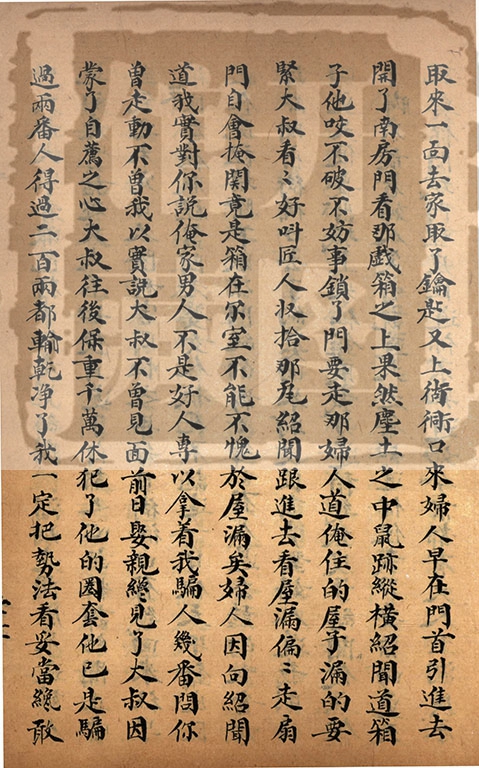 取來一面去家取了鑰匙又上衚衕口來婦人早在門首引進去
開了南房門看那戲箱之上果然塵土之中鼠跡縱橫紹聞道箱
子他咬不破不妨事鎖了門要走那婦人道俺住的屋子漏的要
緊大叔看〻好叫匠人收拾那尾紹聞跟進去看屋漏偏〻走扇
門自會掩関竟是箱在尔室不能不愧於屋漏矣婦人因向紹聞
道我實對你説俺家男人不是好人專以拿着我騙人幾番問你
曾走動不曾我以實説大叔不曾見面前日娶親纔見了大叔因
蒙了自薦之心大叔往後保重千萬休犯了他的圈套他已是騙
過兩番人得過二百兩都輸乾净了我一定把勢法看妥當纔敢